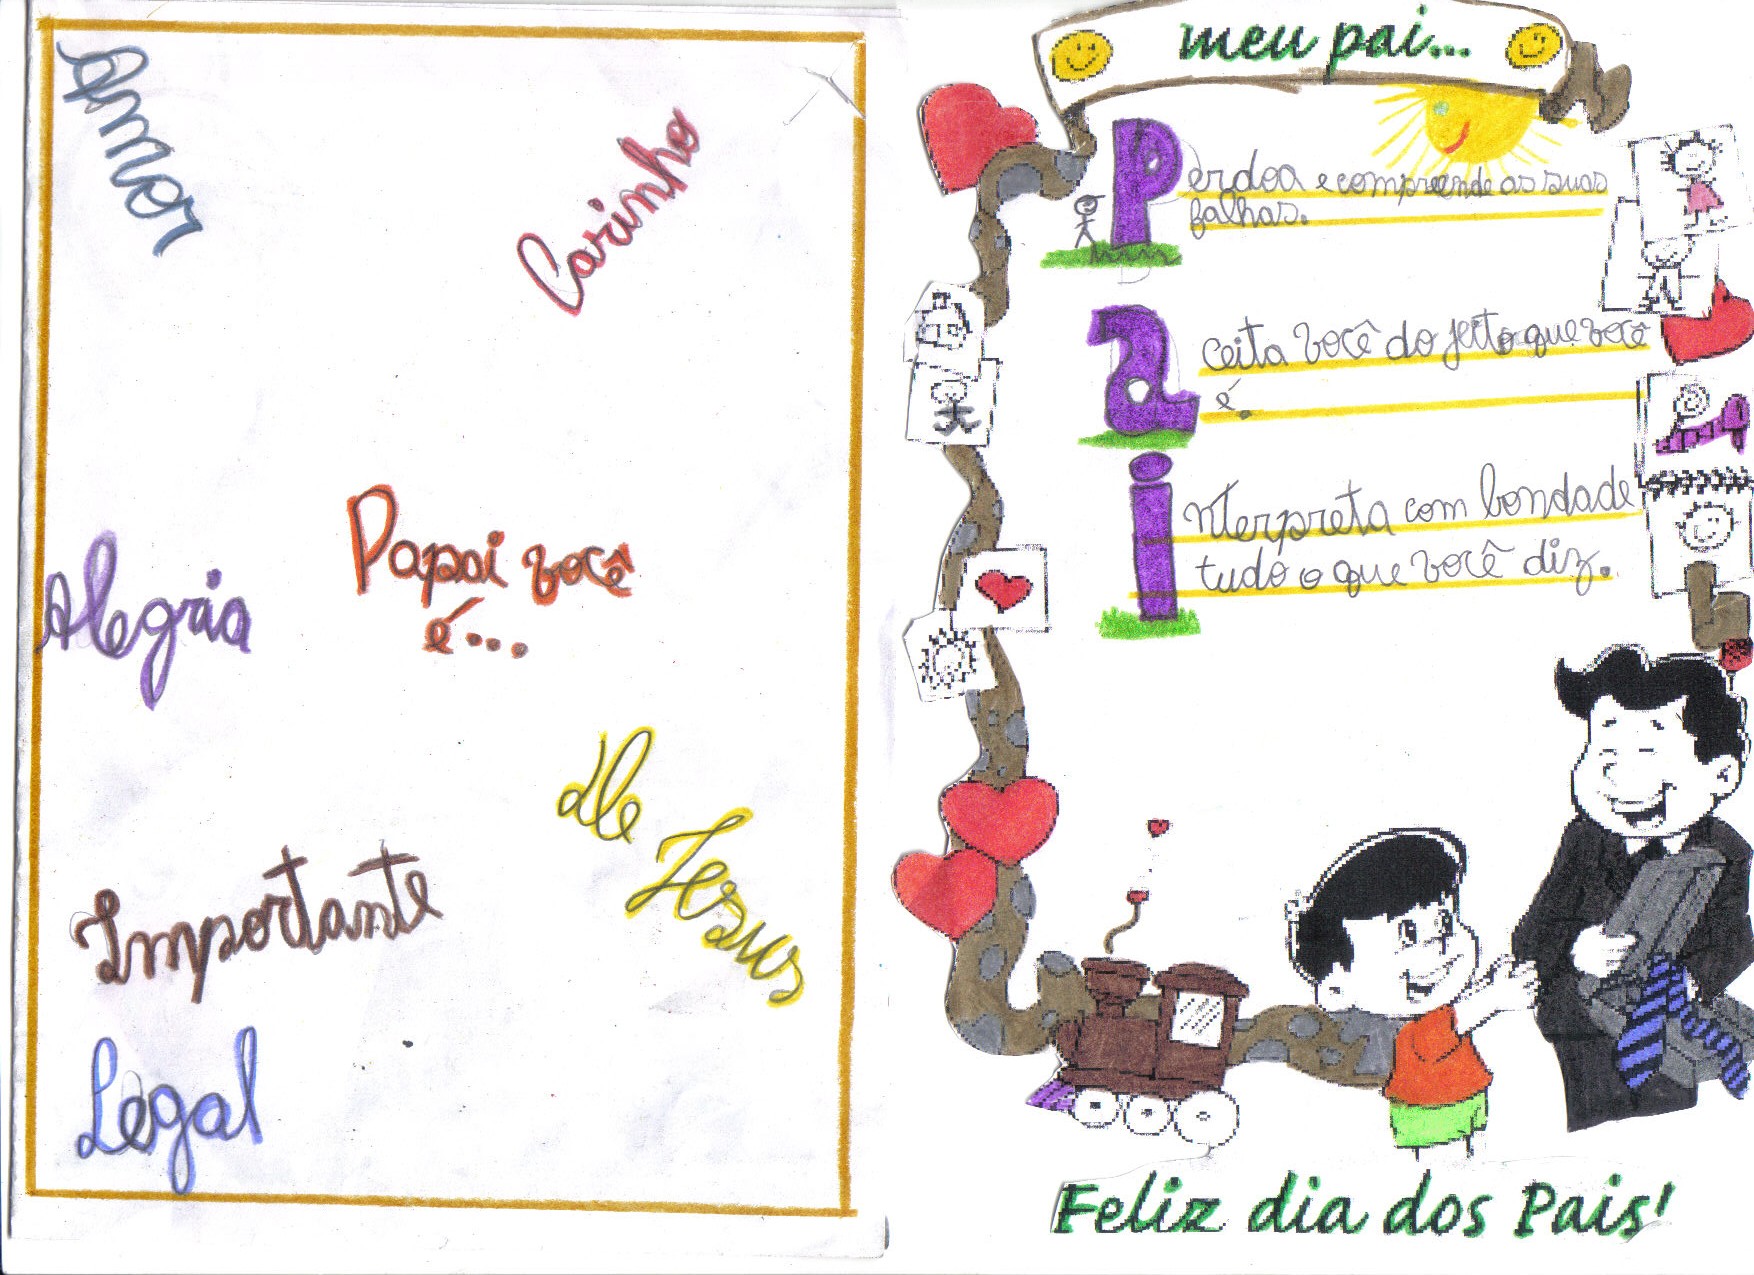 Amor
Carinho
Papai você
é...
Alegria
de Jesus
Importante
Legal
meu pai...
Perdoa e compreende as suas
falhas.
aceita você do jeito que você
é.
interpreta com bondade
tudo o que você diz.
Feliz dia dos Pais!